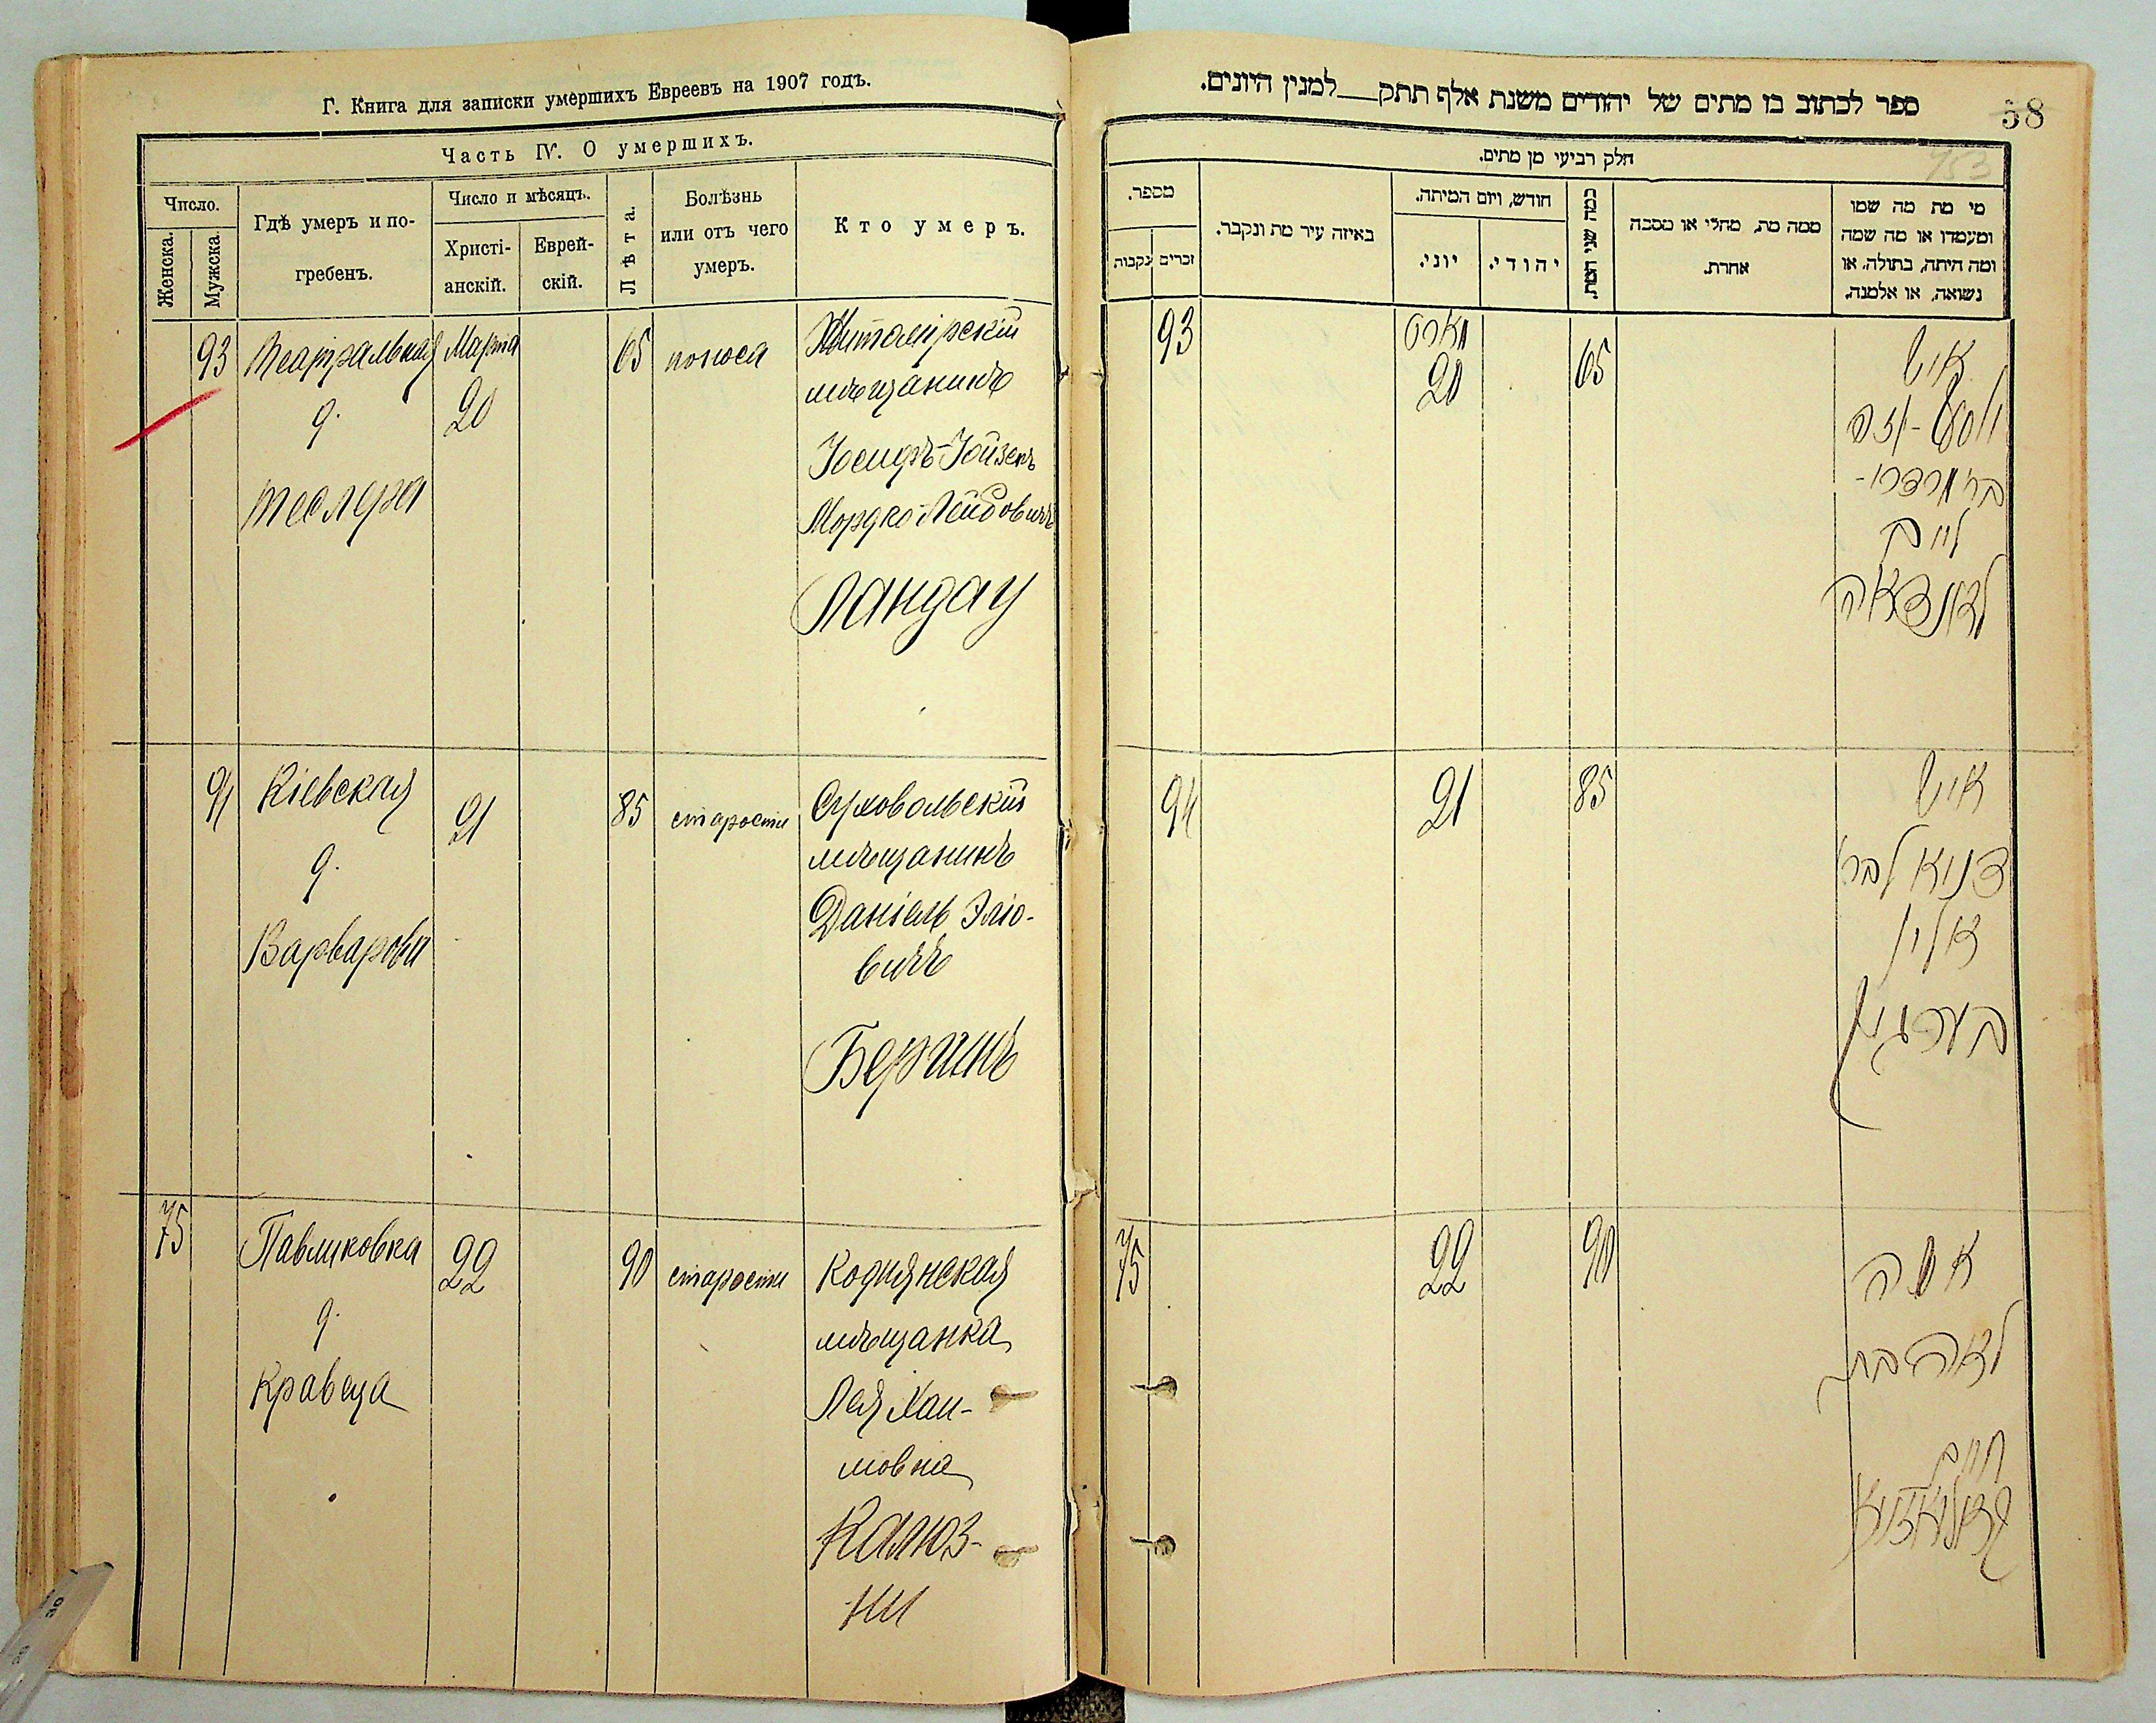 Г. Книга для записки умершихъ Евреевъ на 1907 годъ.
Часть IV. О умершихъ.
Число.
Женска.
Мужска.
Гдѣ умеръ и по-
гребенъ.
Число и мѣсяцъ.
Христі-
анскій.
Еврей-
скій.
Лѣта.
Болѣзнь
или отъ чего
умеръ.
Кто умеръ.
93
Театральная
д.
Теслера
Марта
20
65
поноса
Житомірскій
мѣщанинъ
Іосифъ-Іойзепъ
Мордко-Лейбовичъ
Ландау
94
Кіевская
д.
Варварова
21
85
старости
Суховольскій
мѣщанинъ
Даніель Эліо-
вичъ
Бергинъ
75
Павликовка
д.
Кравеца
22
90
старости
Коднянская
мѣщанка
Лея Хаи-
мовна
Калюз-
ни
ספר לכתוב בו מתים של יהודים משנת אלף תתק למנין היונים.
58
753
חלק רביעי מן מתים.
מספר.
נקבות
זכרים
באיזה עיר מת ונקבר.
חודש, ויום המיתה.
יוני.
יהודי.
כמה שני המת.
ממה מת, מחלי או מסבה
אחרת.
מי מת מה שמו
ומעמדו או מה שמה
ומה היתה, בתולה, או
נשואה, או אלמנה.
93
מארט
20
65
איש
בר׳ מרדכי-
לייב
לאנדאה
94
21
85
איש
דניאל בר׳
אליו
בערגין
75
22
90
אשה
לאה בת
חיים